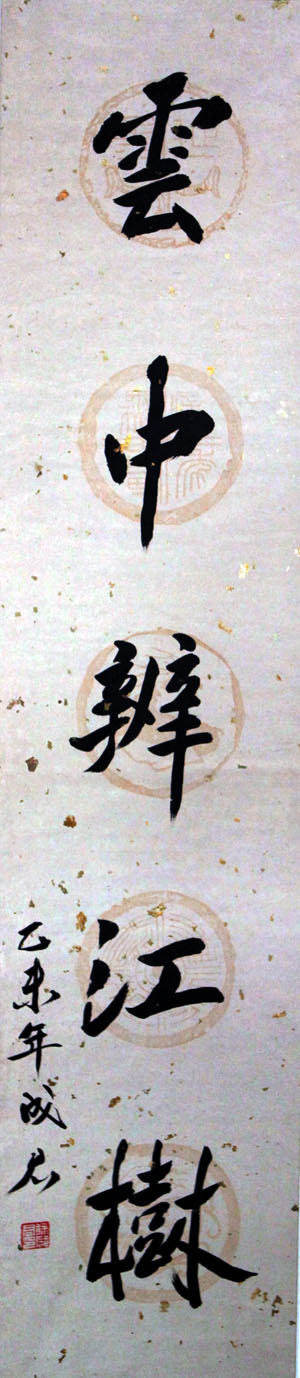 雲中辨江樹
乙未年成君